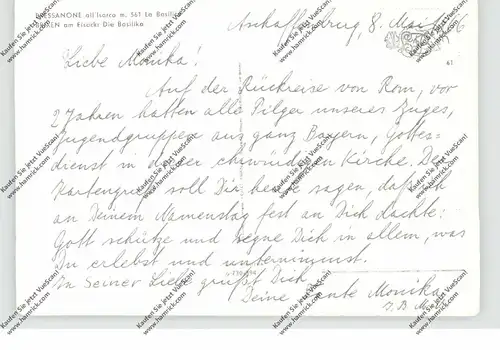 BRESSANONE all'Isarco m. 561 La Basilica
BRIXEN am Eisack: Die Basilika
Aschaffenburg, 8. Mai
61
Liebe Monika!
Auf der Rückreise von Rom, vor
2 Jahren hatten alle Pilger unseres Zuges,
Jugendgruppen aus ganz Bayern, Gottes-
dienst in dieser ehrwürdigen Kirche. Der
Kartengruß soll Dir heute sagen, daß ich
an Deinem Namenstag fest an Dich dachte:
Gott schütze und segne Dich in allem, was
Du erlebst und unternimmst.
In Seiner Liebe grüßt Dich
Deine Tante Monika
Kaufen Sie jetzt VueScan!
www.hamrick.com